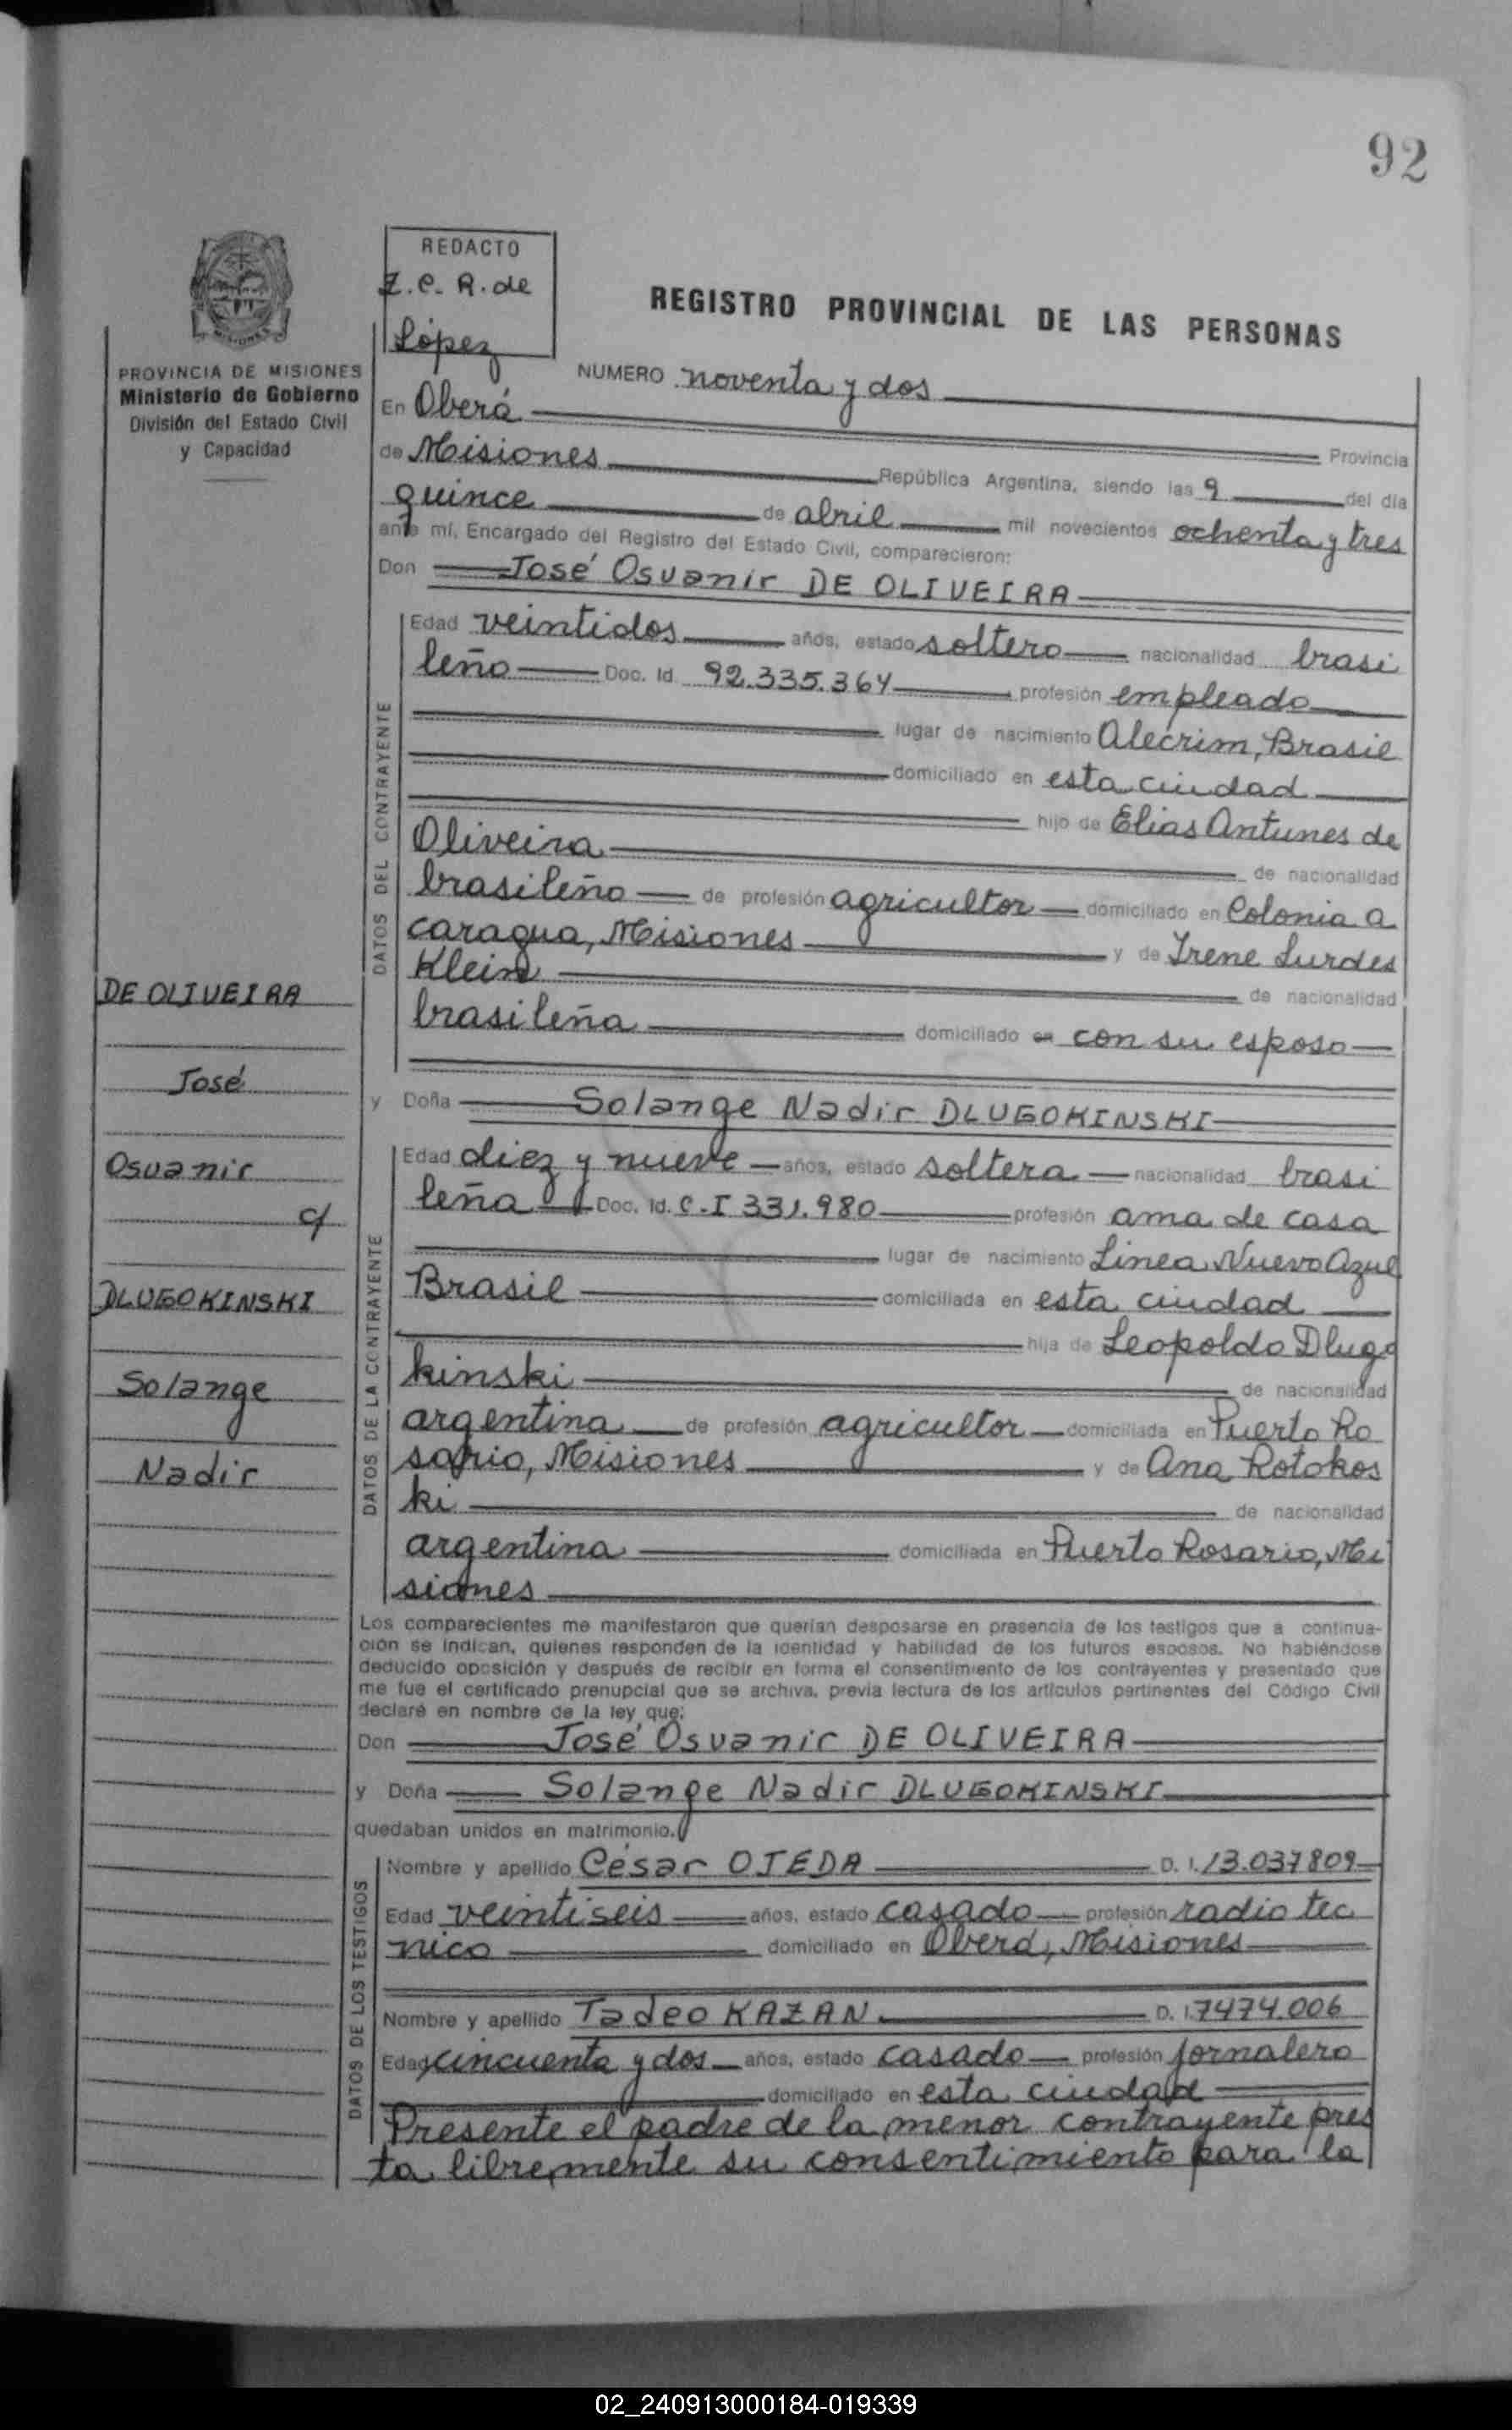 92
REDACTO
Z.C. R. de
López
REGISTRO PROVINCIAL DE LAS PERSONAS
MISIONES
PROVINCIA DE MISIONES
Ministerio de Gobierno
División del Estado Civil
y Capacidad
NUMERO noventa y dos
En Oberá Provincia
de Misiones República Argentina, siendo las 9 del día
quince de abril mil novecientos ochenta y tres
ante mí, Encargado del Registro del Estado Civil, comparecieron:
Don José Osvanir DE OLIVEIRA
DATOS DEL CONTRAYENTE
Edad veintidos años, estado soltero nacionalidad brasi
leño Doc. Id. 92.335.364 profesión empleado
lugar de nacimiento Alecrim, Brasil
domiciliado en esta ciudad
hijo de Elias Antunes de
Oliveira de nacionalidad
brasileño de profesión agricultor domiciliado en Colonia A
caragua, Misiones y de Irene Lurdes
Klein de nacionalidad
brasileña domiciliado en con su esposo
y Doña Solange Nadir DLUGOKINSKI
DATOS DE LA CONTRAYENTE
Edad diez y nueve años, estado soltera nacionalidad brasi
leña Doc. Id. C.I 331.980 profesión ama de casa
lugar de nacimiento Linea Nuevo Azul
Brasil domiciliada en esta ciudad
hija de Leopoldo Dlugo
kinski de nacionalidad
argentina de profesión agricultor domiciliada en Puerto Ro
sario, Misiones y de Ana Rotokos
ki de nacionalidad
argentina domiciliada en Puerto Rosario, Mi
siones
DE OLIVEIRA
José
Osvanir
c/
DLUGOKINSKI
Solange
Nadir
Los comparecientes me manifestaron que querían desposarse en presencia de los testigos que a continua-
ción se indican, quienes responden de la identidad y habilidad de los futuros esposos. No habiéndose
deducido oposición y después de recibir en forma el consentimiento de los contrayentes y presentado que
me fue el certificado prenupcial que se archiva, previa lectura de los artículos pertinentes del Código Civil
declaré en nombre de la ley, que:
Don José Osvanir DE OLIVEIRA
y Doña Solange Nadir DLUGOKINSKI
quedaban unidos en matrimonio.
DATOS DE LOS TESTIGOS
Nombre y apellido César OJEDA D. I. 13.037809
Edad veintiseis años, estado casado profesión radio tec
nico domiciliado en Oberá, Misiones
Nombre y apellido Tadeo KAZAN D. I. 7474.006
Edad cincuenta y dos años, estado casado profesión jornalero
domiciliado en esta ciudad
Presente el padre de la menor contrayente pres
ta libremente su consentimiento para la
02_240913000184-019339